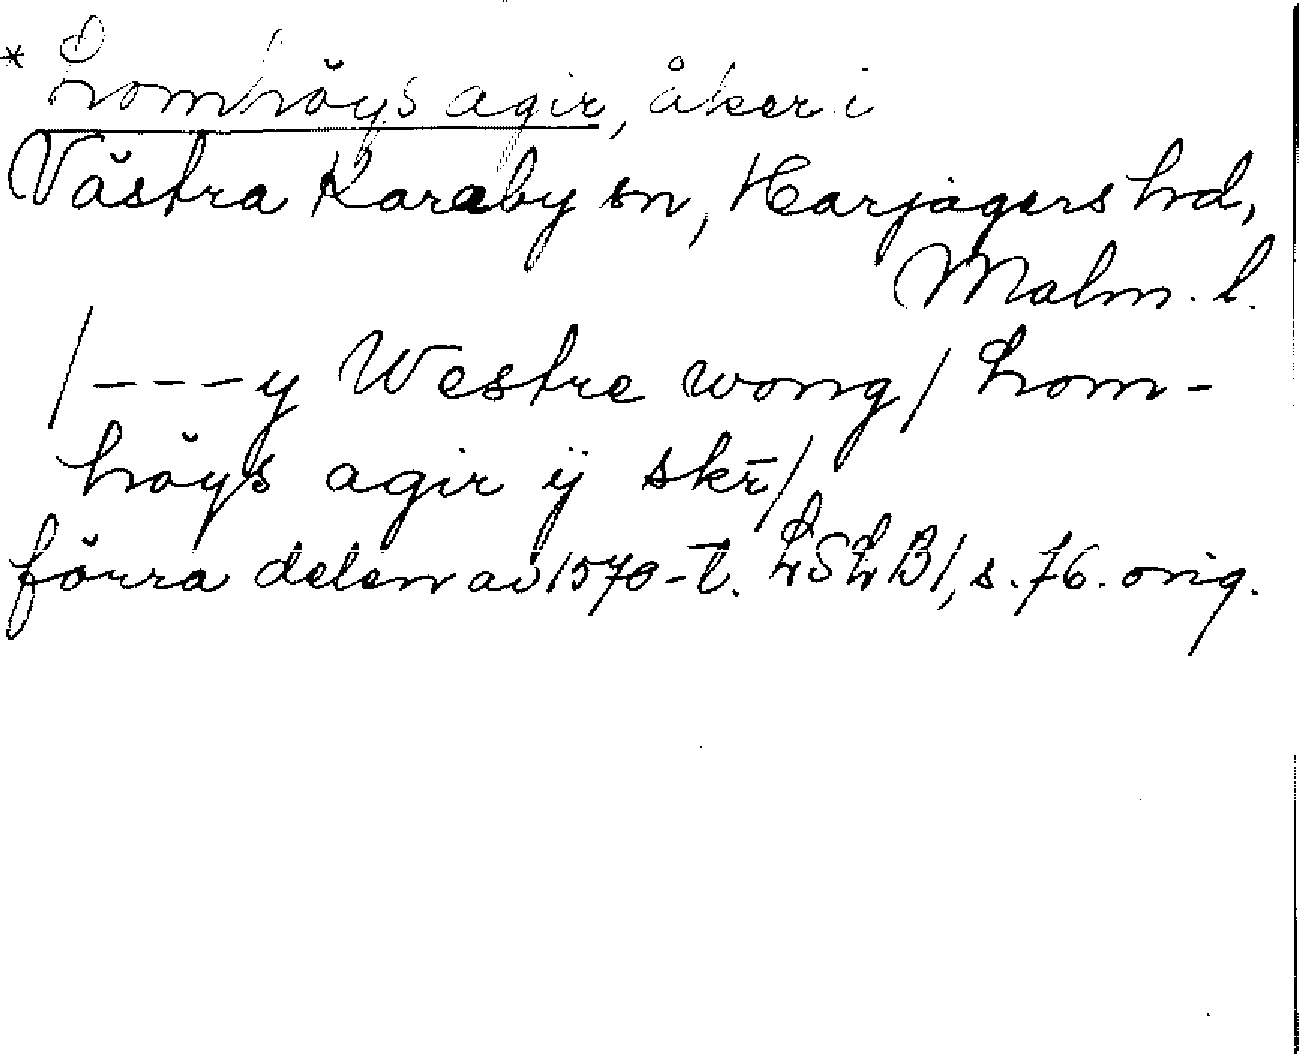 * Lomhöys agir, åker i
Västra Karaby sn, Harjagers hd,
Malm. l.
/---y Westre wong/ Lom-
höys agir ij skr̄/
förra delen av 1570-t. LSLB1, s. 76. orig.